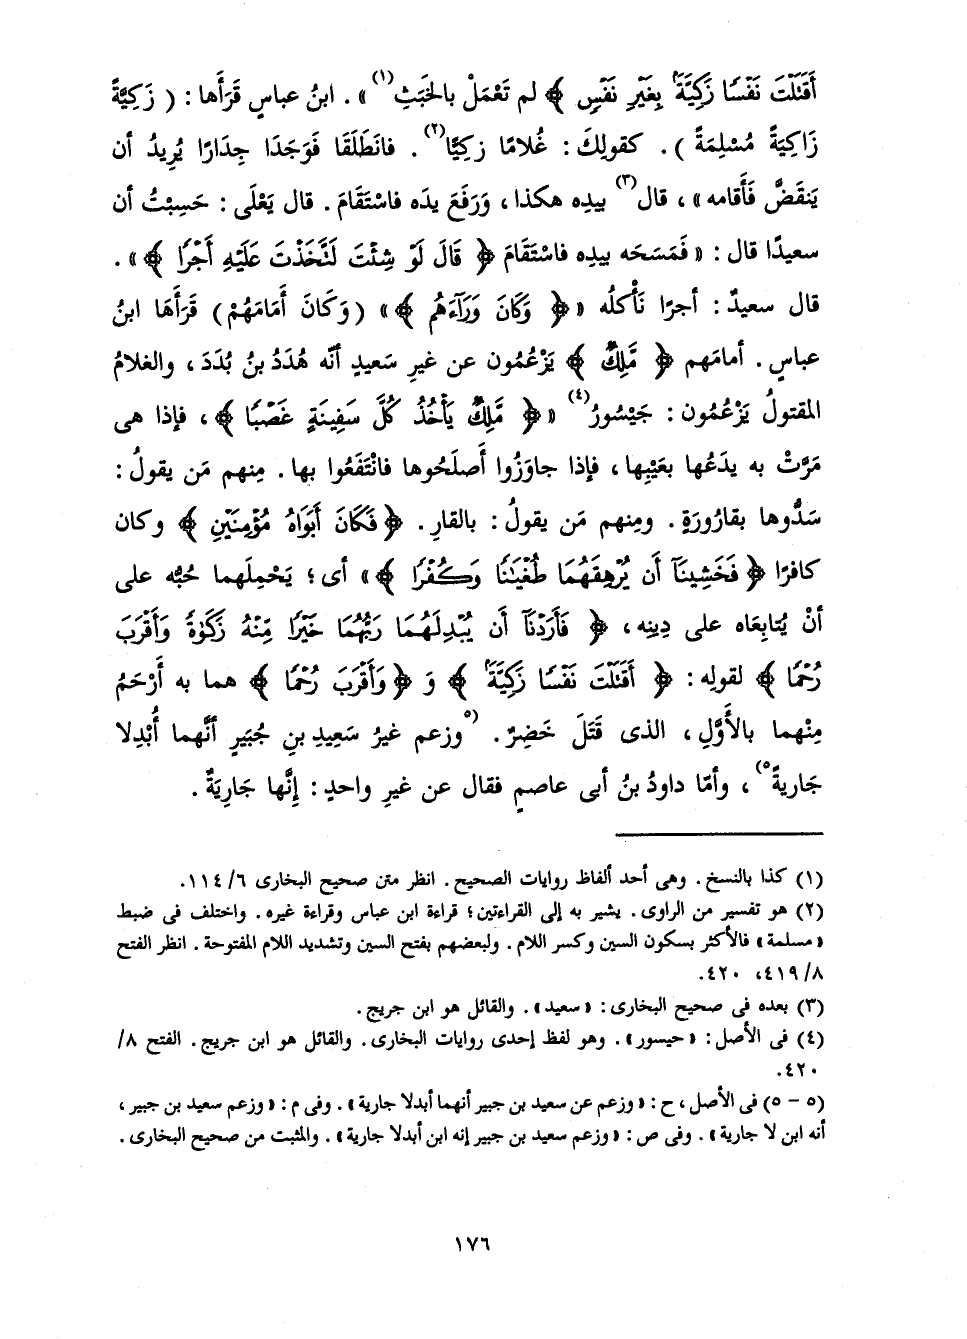 أَقَتَلْتَ نَفْسًا زَكِيَّةً بِغَيْرِ نَفْسٍ ﴾ لم تَعْمَلْ بالخَبَثِ(١)» . ابنُ عباسٍ قَرَأَها : ( زَكِيَّةً
زَاكِيَةً مُسْلِمَةً ) . كقولِكَ : غُلامًا زكِيًّا(٢) . فانَطَلَقَا فَوَجَدَا جِدَارًا يُرِيدُ أن
يَنقَضَّ فَأَقامه» ، قال(٣) بيدِه هكذا ، وَرَفَعَ يدَه فاسْتَقَامَ . قال يَعْلَى : حَسِبْتُ أن
سعيدًا قال : « فَمَسَحَه بيدِه فاسْتَقامَ ﴿ قَالَ لَوْ شِئْتَ لَتَّخَذْتَ عَلَيْهِ أَجْرًا ﴾» .
قال سعيدٌ : أجرًا نَأْكلُه « ﴿ وَكَانَ وَرَآءَهُم ﴾» ( وَكَانَ أَمَامَهُمْ ) قَرَأَها ابنُ
عباسٍ . أمامَهم ﴿ مَّلِكٌ ﴾ يَزْعُمُون عن غيرِ سَعيدٍ أنّه هُدَدُ بنُ بُدَدَ ، والغلامُ
المقتولُ يَزْعُمُون : جَيْسُورُ(٤) « ﴿ مَّلِكٌ يَأْخُذُ كُلَّ سَفِينَةٍ غَصْبًا ﴾ ، فإذا هى
مَرَّتْ به يدَعُها بعَيْبِها ، فإذا جاوَزُوا أَصلَحُوها فانْتَفَعُوا بها . مِنهم مَن يقولُ :
سَدُّوها بقارُورَةٍ . ومِنهم مَن يقولُ : بالقارِ . ﴿ فَكَانَ أَبَوَاهُ مُؤْمِنَيْنِ ﴾ وكان
كافرًا ﴿ فَخَشِينَآ أَن يُرْهِقَهُمَا طُغْيَٰنًا وَكُفْرًا ﴾» أى ؛ يَحْمِلَهما حُبُّه على
أنْ يُتابِعَاه على دِينِه ، ﴿ فَأَرَدْنَآ أَن يُبْدِلَهُمَا رَبُّهُمَا خَيْرًا مِّنْهُ زَكَوٰةً وَأَقْرَبَ
رُحْمًا ﴾ لقولِه : ﴿ أَقَتَلْتَ نَفْسًا زَكِيَّةً ﴾ وَ ﴿ وَأَقْرَبَ رُحْمًا ﴾ هما به أَرْحَمُ
مِنْهما بالأَوَّلِ ، الذى قَتَلَ خَضِرٌ . (٥وزعم غيرُ سَعِيدِ بنِ جُبَيرٍ أنَّهما أُبْدِلا
جَاريةً٥) ، وأمّا داودُ بنُ أبى عاصمٍ فقال عن غيرِ واحدٍ : إنَّها جَارِيَةٌ .
(١) كذا بالنسخ . وهى أحد ألفاظ روايات الصحيح . انظر متن صحيح البخارى ٦/ ١١٤.
(٢) هو تفسير من الراوى . يشير به إلى القراءتين ؛ قراءة ابن عباس وقراءة غيره . واختلف فى ضبط
« مسلمة » فالأكثر بسكون السين وكسر اللام . ولبعضهم بفتح السين وتشديد اللام المفتوحة . انظر الفتح
٨/ ٤١٩، ٤٢٠.
(٣) بعده فى صحيح البخارى : « سعيد » . والقائل هو ابن جريج .
(٤) فى الأصل : « حيسور » . وهو لفظ إحدى روايات البخارى . والقائل هو ابن جريج . الفتح ٨/
٤٢٠.
(٥ - ٥) فى الأصل ، ح : « وزعم عن سعيد بن جبير أنهما أبدلا جارية » . وفى م : « وزعم سعيد بن جبير ،
أنه ابن لا جارية » . وفى ص : « وزعم سعيد بن جبير إنه ابن أبدلا جارية » . والمثبت من صحيح البخارى .
١٧٦